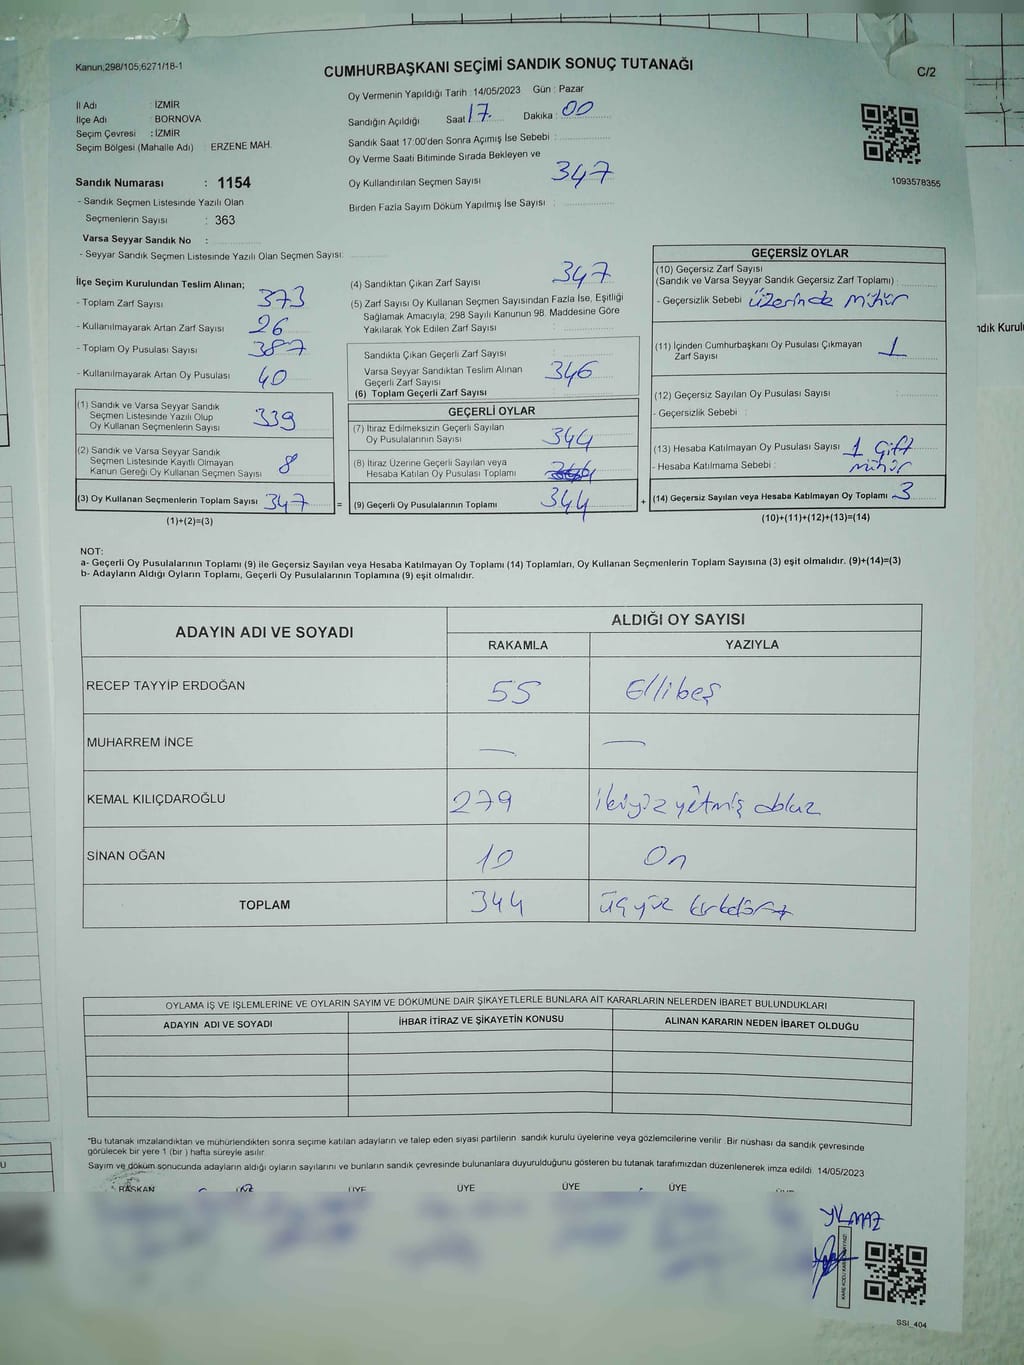 Kanun;298/105;6271/18-1
CUMHURBAŞKANI SEÇİMİ SANDIK SONUÇ TUTANAĞI
C/2
İl Adı : İZMİR
İlçe Adı : BORNOVA
Seçim Çevresi : İZMİR
Seçim Bölgesi (Mahalle Adı) : ERZENE MAH.
Sandık Numarası : 1154
- Sandık Seçmen Listesinde Yazılı Olan
Seçmenlerin Sayısı : 363
Varsa Seyyar Sandık No :
- Seyyar Sandık Seçmen Listesinde Yazılı Olan Seçmen Sayısı:
Oy Vermenin Yapıldığı Tarih : 14/05/2023 Gün : Pazar
Sandığın Açıldığı Saat 17. Dakika : 00
Sandık Saat 17:00'den Sonra Açımış İse Sebebi :
Oy Verme Saati Bitiminde Sırada Bekleyen ve
Oy Kullandırılan Seçmen Sayısı 347
Birden Fazla Sayım Döküm Yapılmış İse Sayısı :
1093578355
İlçe Seçim Kurulundan Teslim Alınan;
- Toplam Zarf Sayısı 373
- Kullanılmayarak Artan Zarf Sayısı 26
- Toplam Oy Pusulası Sayısı 387
- Kullanılmayarak Artan Oy Pusulası 40
(1) Sandık ve Varsa Seyyar Sandık
Seçmen Listesinde Yazılı Olup
Oy Kullanan Seçmenlerin Sayısı 339
(2) Sandık ve Varsa Seyyar Sandık
Seçmen Listesinde Kayıtlı Olmayan
Kanun Gereği Oy Kullanan Seçmen Sayısı 8
(3) Oy Kullanan Seçmenlerin Toplam Sayısı 347 =
(1)+(2)=(3)
(4) Sandıktan Çıkan Zarf Sayısı : 347
(5) Zarf Sayısı Oy Kullanan Seçmen Sayısından Fazla İse, Eşitliği
Sağlamak Amacıyla; 298 Sayılı Kanunun 98. Maddesine Göre
Yakılarak Yok Edilen Zarf Sayısı :
Sandıkta Çıkan Geçerli Zarf Sayısı :
Varsa Seyyar Sandıktan Teslim Alınan
Geçerli Zarf Sayısı 346
(6) Toplam Geçerli Zarf Sayısı
GEÇERLİ OYLAR
(7) İtiraz Edilmeksizin Geçerli Sayılan
Oy Pusulalarının Sayısı 344
(8) İtiraz Üzerine Geçerli Sayılan veya
Hesaba Katılan Oy Pusulası Toplamı
(9) Geçerli Oy Pusulalarının Toplamı 344 +
GEÇERSİZ OYLAR
(10) Geçersiz Zarf Sayısı
(Sandık ve Varsa Seyyar Sandık Geçersiz Zarf Toplamı) :
- Geçersizlik Sebebi : üzerinde mühür
(11) İçinden Cumhurbaşkanı Oy Pusulası Çıkmayan
Zarf Sayısı 1
(12) Geçersiz Sayılan Oy Pusulası Sayısı :
- Geçersizlik Sebebi :
(13) Hesaba Katılmayan Oy Pusulası Sayısı : 1 çift
- Hesaba Katılmama Sebebi : mühür
(14) Geçersiz Sayılan veya Hesaba Katılmayan Oy Toplamı 3
(10)+(11)+(12)+(13)=(14)
NOT:
a- Geçerli Oy Pusulalarının Toplamı (9) ile Geçersiz Sayılan veya Hesaba Katılmayan Oy Toplamı (14) Toplamları, Oy Kullanan Seçmenlerin Toplam Sayısına (3) eşit olmalıdır. (9)+(14)=(3)
b- Adayların Aldığı Oyların Toplamı, Geçerli Oy Pusulalarının Toplamına (9) eşit olmalıdır.
ADAYIN ADI VE SOYADI ALDIĞI OY SAYISI
RAKAMLA YAZIYLA
RECEP TAYYİP ERDOĞAN 55 Ellibeş
MUHARREM İNCE — —
KEMAL KILIÇDAROĞLU 279 ikiyüz yetmiş dokuz
SİNAN OĞAN 10 On
TOPLAM 344 üçyüz kırkdört
OYLAMA İŞ VE İŞLEMLERİNE VE OYLARIN SAYIM VE DÖKÜMÜNE DAİR ŞİKAYETLERLE BUNLARA AİT KARARLARIN NELERDEN İBARET BULUNDUKLARI
ADAYIN ADI VE SOYADI İHBAR İTİRAZ VE ŞİKAYETİN KONUSU ALINAN KARARIN NEDEN İBARET OLDUĞU
*Bu tutanak imzalandıktan ve mühürlendikten sonra seçime katılan adayların ve talep eden siyasi partilerin sandık kurulu üyelerine veya gözlemcilerine verilir. Bir nüshası da sandık çevresinde
görülecek bir yere 1 (bir ) hafta süreyle asılır.
Sayım ve döküm sonucunda adayların aldığı oyların sayılarını ve bunların sandık çevresinde bulunanlara duyurulduğunu gösteren bu tutanak tarafımızdan düzenlenerek imza edildi. 14/05/2023
BAŞKAN ÜYE ÜYE ÜYE ÜYE
YILMAZ
SSI_404
ndık Kurulu